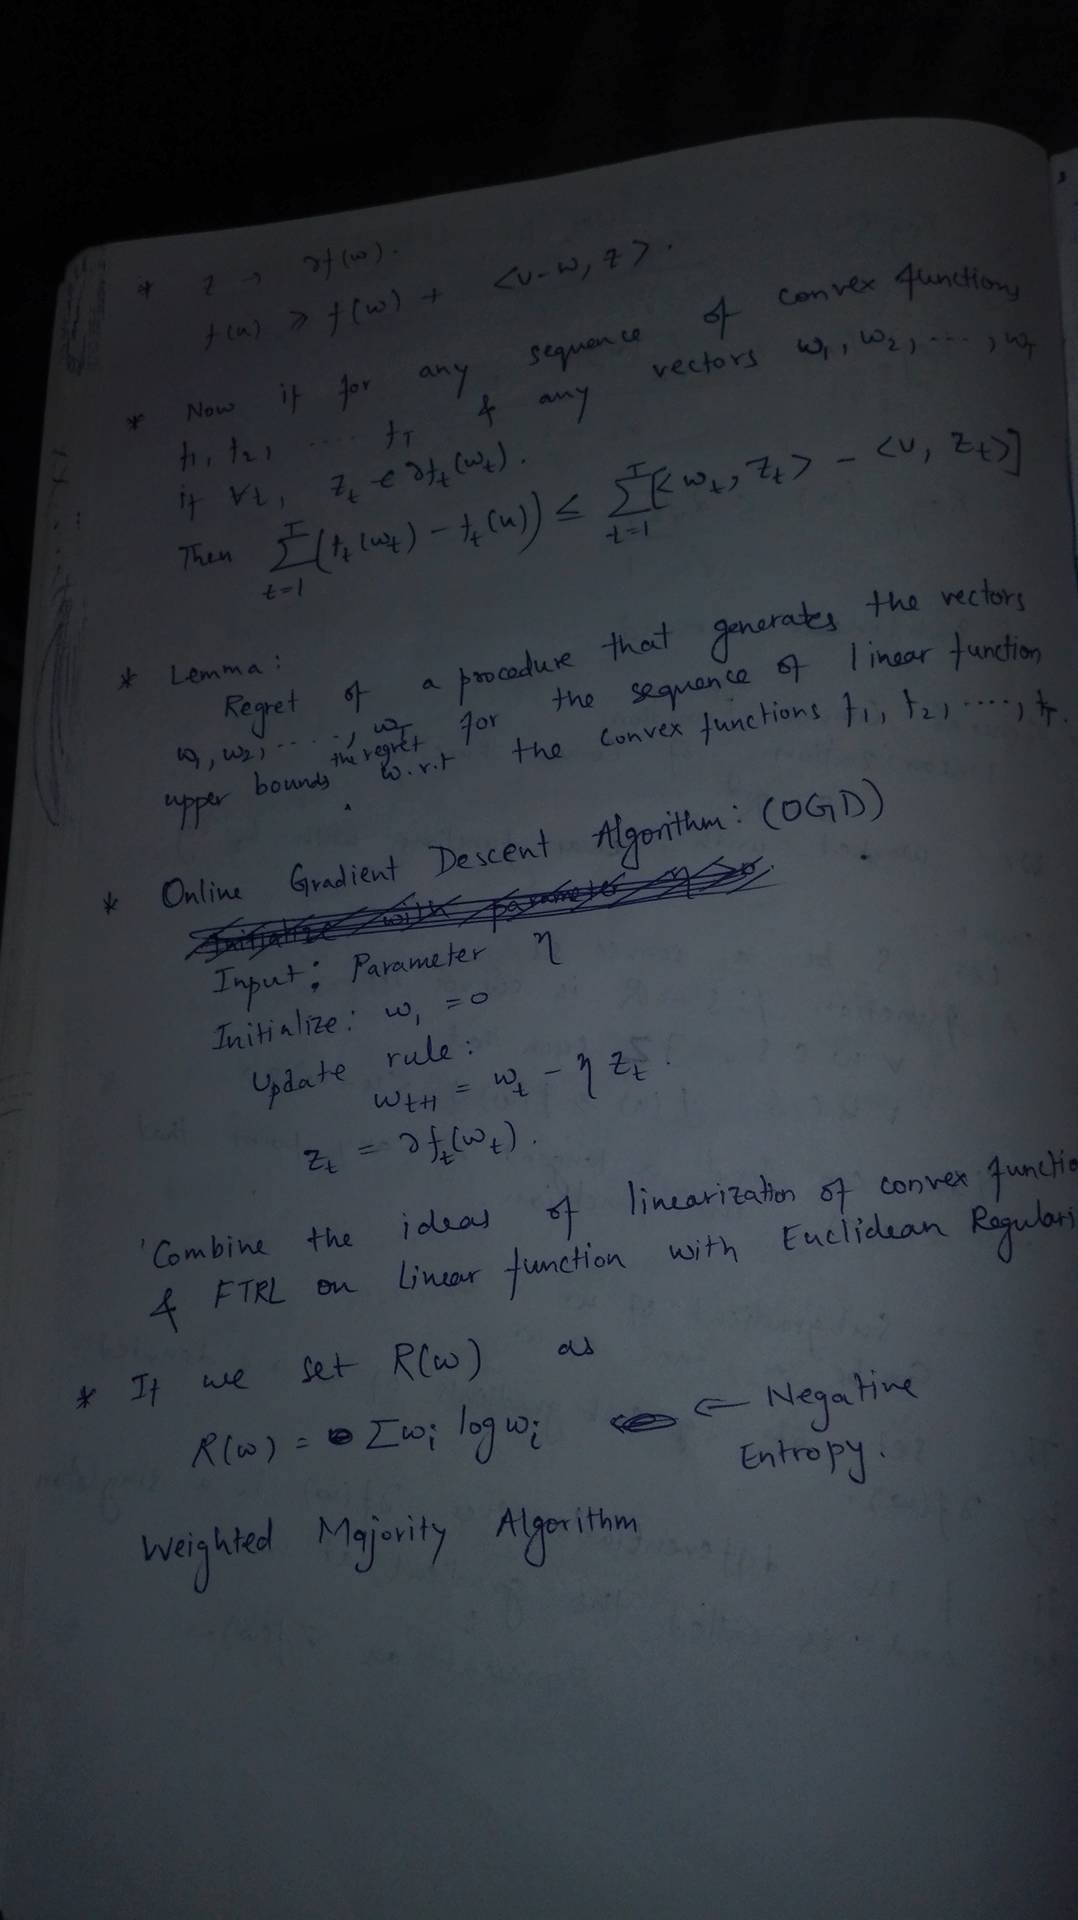 * z → ∂f(w).
f(u) ≥ f(w) + <u-w, z>.
* Now if for any sequence of convex functions
f₁, f₂, .... f_T & any vectors w₁, w₂, ..., w_T
if ∀t, z_t ∈ ∂f_t(w_t).
Then Σ_{t=1}^{T} (f_t(w_t) - f_t(u)) ≤ Σ_{t=1}^{T} [<w_t, z_t> - <u, z_t>]
* Lemma:
Regret of a procedure that generates the vectors
w₁, w₂, ....., w_T for the sequence of linear function
upper bounds the regret w.r.t the convex functions f₁, f₂, ...., f_T.
* Online Gradient Descent Algorithm: (OGD)
Initialize with parameter η > 0.
Input: Parameter η
Initialize: w₁ = 0
Update rule:
w_{t+1} = w_t - η z_t.
z_t = ∂f_t(w_t).
Combine the ideas of linearization of convex functio
& FTRL on linear function with Euclidean Regulari
* If we set R(w) as
R(w) = Σ w_i log w_i ← Negative
Entropy.
Weighted Majority Algorithm